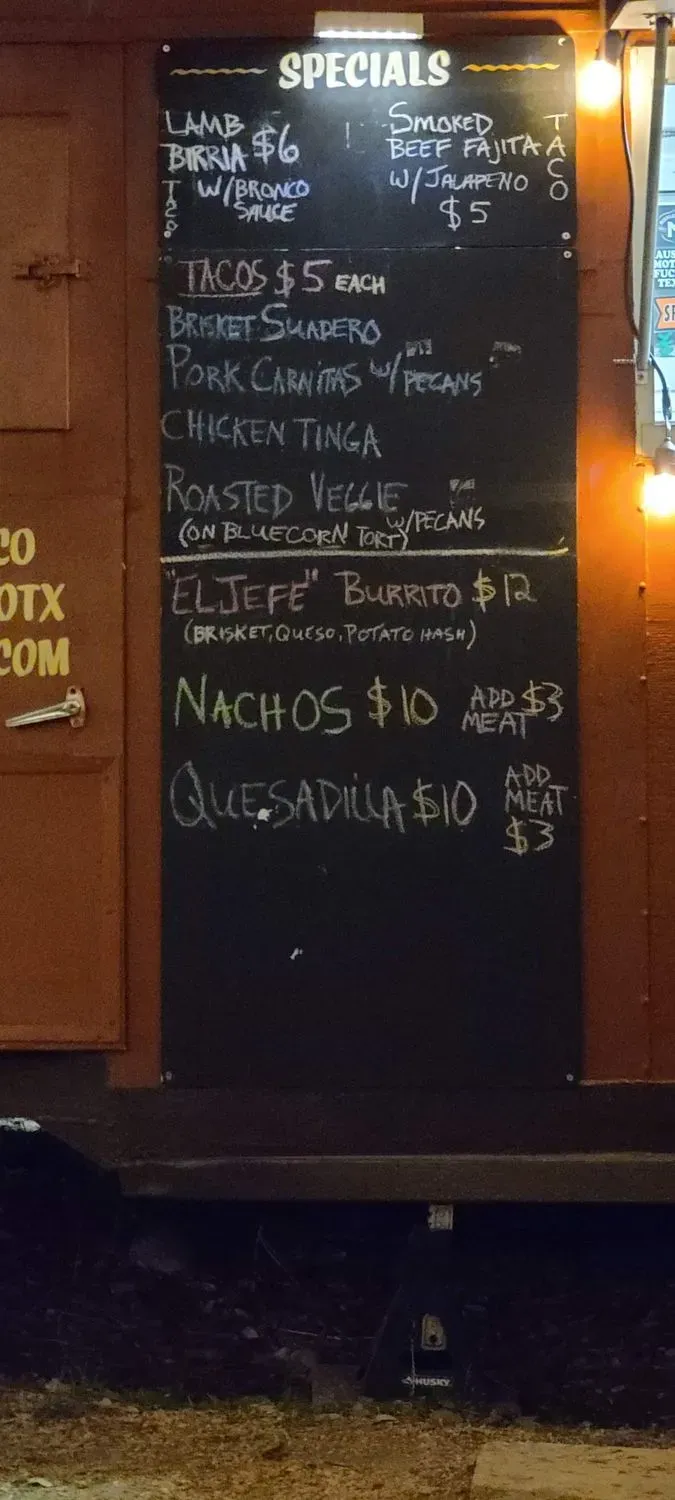 SPECIALS
LAMB
BIRRIA $6
W/BRONCO
SAUCE
TACO
SMOKED
BEEF FAJITA
W/JALAPENO
$5
TACO
TACOS $5 EACH
BRISKET SUADERO
PORK CARNITAS W/PECANS
CHICKEN TINGA
ROASTED VEGGIE
W/PECANS
(ON BLUECORN TORT)
"EL JEFE" BURRITO $12
(BRISKET, QUESO, POTATO HASH)
NACHOS $10
ADD $3
MEAT
QUESADILLA $10
ADD
MEAT
$3
CO
OTX
COM
AUS
MOT
FUC
TEX
HUSKY